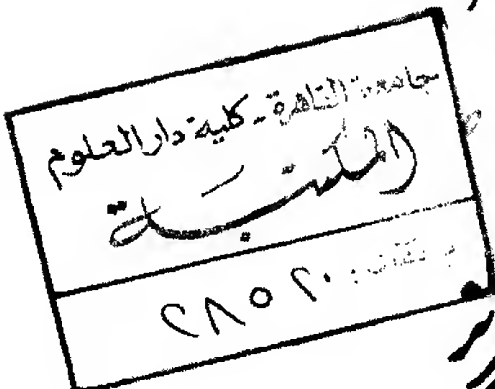 جامعة القاهرة - كلية دار العلوم
المكتبة
٢٨٥٢٠